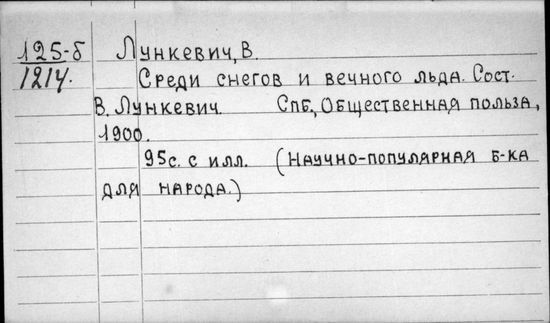 125-б Лункевич, В.
1214. Среди снегов и вечного льда. Сост.
В. Лункевич. Спб, Общественная польза,
1900.
95с. с илл. (Научно-популярная б-ка
для народа.)